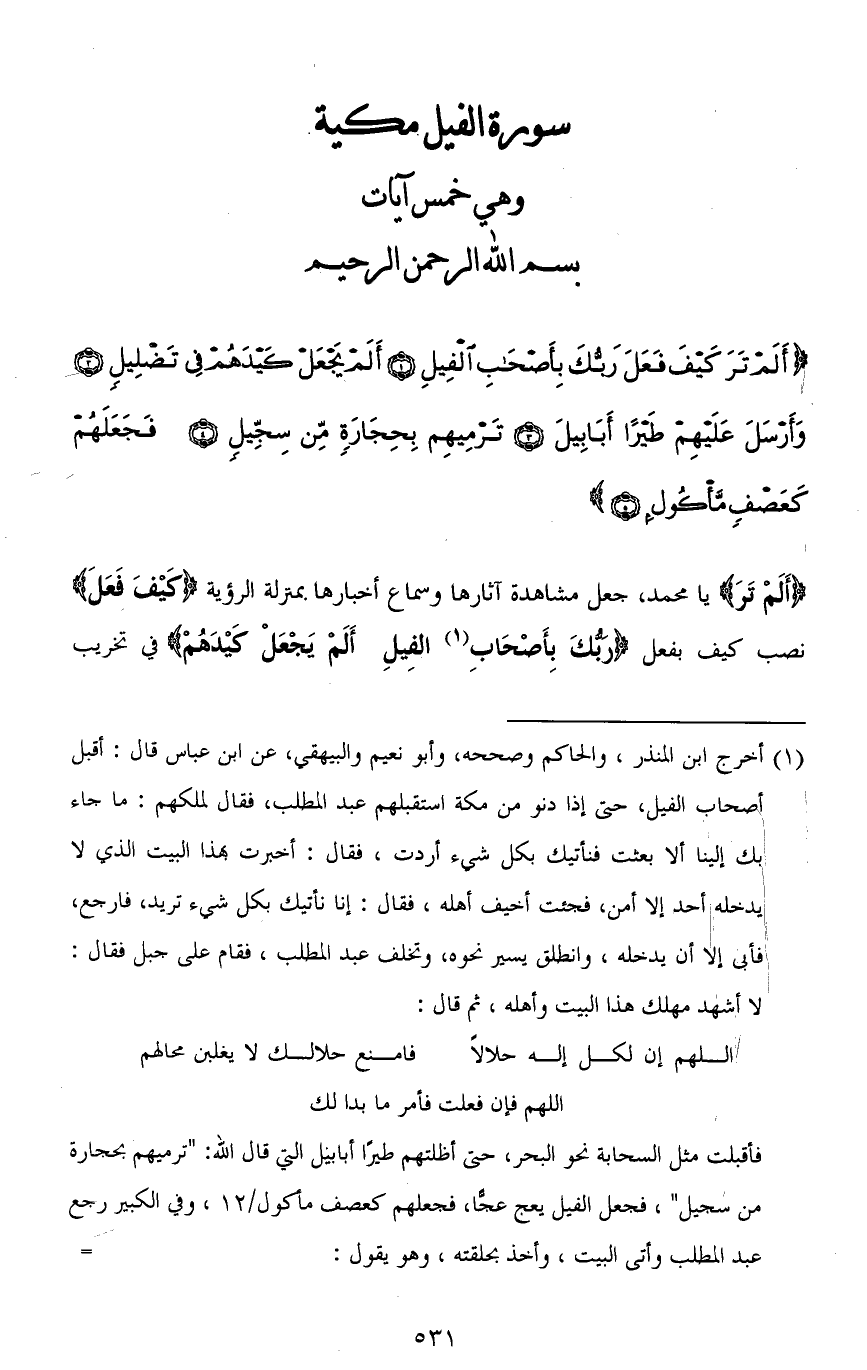 سورة الفيل مكية
وهي خمس آيات
بسم الله الرحمن الرحيم
﴿ أَلَمْ تَرَ كَيْفَ فَعَلَ رَبُّكَ بِأَصْحَٰبِ ٱلْفِيلِ ۝١ أَلَمْ يَجْعَلْ كَيْدَهُمْ فِى تَضْلِيلٍ ۝٢
وَأَرْسَلَ عَلَيْهِمْ طَيْرًا أَبَابِيلَ ۝٣ تَرْمِيهِم بِحِجَارَةٍ مِّن سِجِّيلٍ ۝٤ فَجَعَلَهُمْ
كَعَصْفٍ مَّأْكُولٍ ۝٥ ﴾
﴿أَلَمْ تَرَ﴾ يا محمد، جعل مشاهدة آثارها وسماع أخبارها بمنزلة الرؤية ﴿كَيْفَ فَعَلَ﴾
نصب كيف بفعل ﴿رَبُّكَ بِأَصْحَابِ(١) الفِيلِ أَلَمْ يَجْعَلْ كَيْدَهُمْ﴾ في تخريب
(١) أخرج ابن المنذر ، والحاكم وصححه، وأبو نعيم والبيهقي، عن ابن عباس قال : أقبل
أصحاب الفيل، حتى إذا دنو من مكة استقبلهم عبد المطلب، فقال لملكهم : ما جاء
بك إلينا ألا بعثت فنأتيك بكل شيء أردت ، فقال : أخبرت بهذا البيت الذي لا
يدخله أحد إلا أمن، فجئت أخيف أهله ، فقال : إنا نأتيك بكل شيء تريد، فارجع،
فأبى إلا أن يدخله ، وانطلق يسير نحوه، وتخلف عبد المطلب ، فقام على جبل فقال :
لا أشهد مهلك هذا البيت وأهله ، ثم قال :
اللهم إن لكل إله حلالاً فامنع حلالك لا يغلبن محالهم
اللهم فإن فعلت فأمر ما بدا لك
فأقبلت مثل السحابة نحو البحر، حتى أظلتهم طيرًا أبابيل التي قال الله: "ترميهم بحجارة
من سجيل" ، فجعل الفيل يعج عجًّا، فجعلهم كعصف مأكول/١٢ ، وفي الكبير رجع
عبد المطلب وأتى البيت ، وأخذ بحلقته ، وهو يقول : =
٥٣١